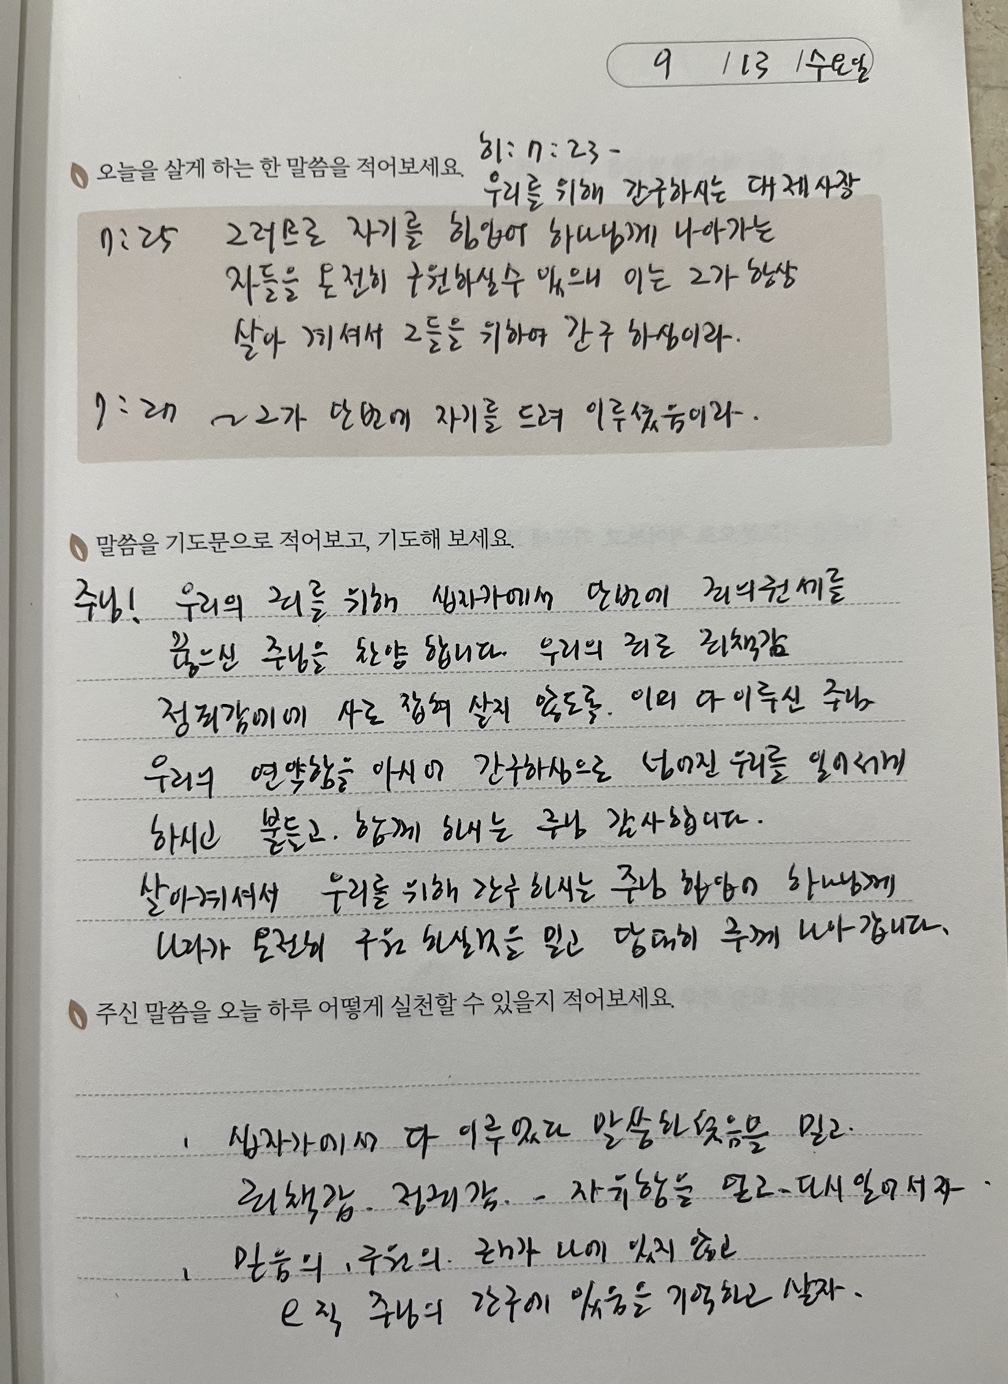 9 / 13 / 수요일
히: 7:23 -
오늘을 살게 하는 한 말씀을 적어보세요.
우리를 위해 간구하시는 대제사장
7:25 그러므로 자기를 힘입어 하나님께 나아가는
자들을 온전히 구원하실수 있으니 이는 그가 항상
살아 계셔서 그들을 위하여 간구 하심이라.
7:27 ~그가 단번에 자기를 드려 이루셨음이라.
말씀을 기도문으로 적어보고, 기도해 보세요.
주님! 우리의 죄를 위해 십자가에서 단번에 죄의권세를
끊으신 주님을 찬양 합니다. 우리의 죄로 죄책감
정죄감에에 사로 잡혀 살지 않도록. 이미 다 이루신 주님
우리의 연약함을 아시어 간구하심으로 넘어진 우리를 일어서게
하시고 붙들고. 함께 하시는 주님 감사합니다.
살아계셔서 우리를 위해 간구 하시는 주님 힘입어 하나님께
나아가 온전히 구원 하실것을 믿고 담대히 주께 나아 갑니다.
주신 말씀을 오늘 하루 어떻게 실천할 수 있을지 적어보세요.
십자가에서 다 이루었다 말씀하셨음을 믿고.
죄책감. 정죄감. - 자유함을 얻고 - 다시 일어서자.
믿음의, 구원의. 근거가 나에 있지 않고
오직 주님의 간구에 있음을 기억하고 살자.